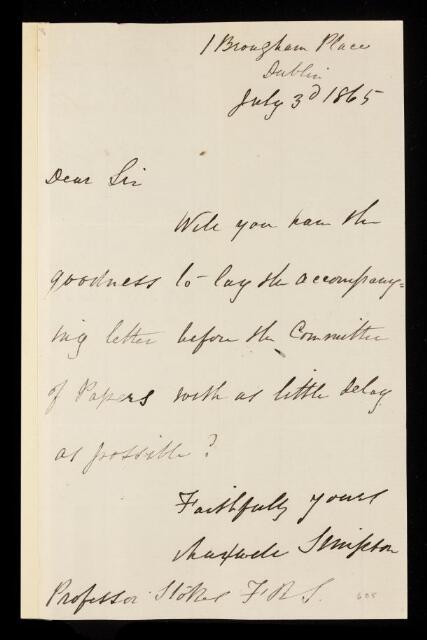 1 Brougham Place
Dublin
July 3d 1865
Dear Sir
Will you have the
goodness to lay the accompany=
ing letter before the Committee
of Papers with as little delay
as possible?
Faithfully yours
Maxwell Simpson
Professor Stokes F.R.S.